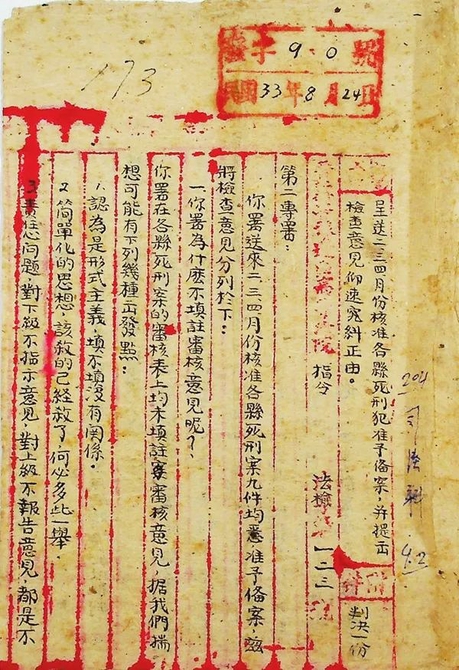 173
字 9 0 號
民國33年8月24日
呈送二三四月份核准各縣死刑犯准予備案,并提出
檢查意見仰速究糾正由。
判決一份
指令 法檢 一二三
第二專署:
你署送來二三四月份核准各縣死刑案九件均悉准予備案,茲
將檢查意見分列於下:
一你署為什麽不填註審核意見呢?
你署在各縣死刑案的審核表上均未填註審核意見,據我們揣
想可能有下列幾種出發點:
1、認為是形式主義,填不填沒有關係。
2簡單化的思想,該殺的已經殺了,何必多些一舉。
3責任心問題 對下級不指示意見,對上級不報告意見,都是不
204